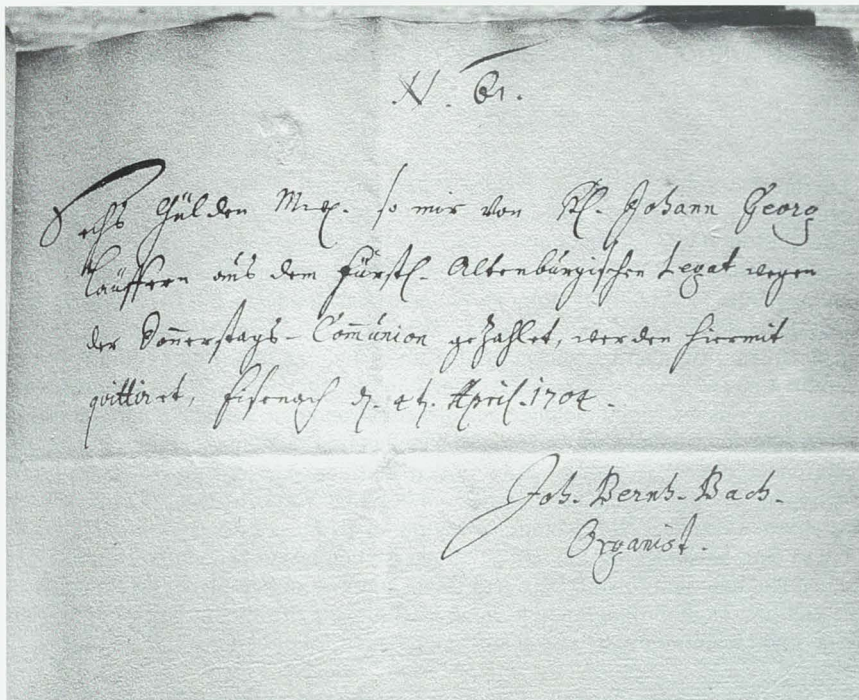 N. 61.
Sechs Gülden Mß. so mir von H. Johann Georg
Läuffern aus dem Fürstl. Altenburgischen Legat wegen
der Donnerstags-Communion gezahlet, werden hiermit
quittiret, Eisenach d. April. 1704.
Joh. Bernh. Bach.
Organist.